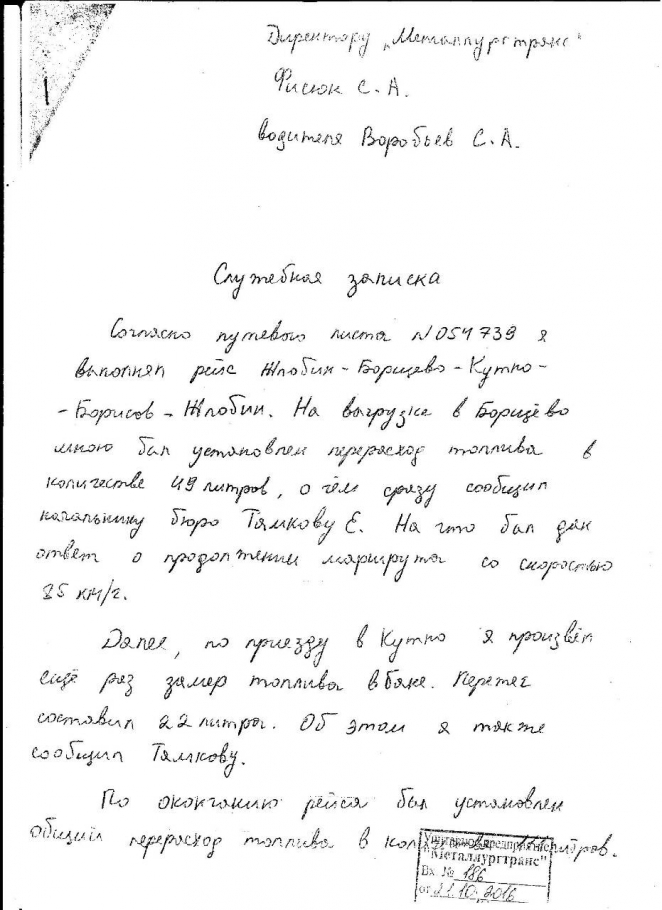 Директору „Металлургтранс"
Фисюк С.А.
водителя Воробьев С.А.
Служебная записка
Согласно путевого листа N054739 я
выполнял рейс Жлобин-Борщево-Кутно-
-Борисов-Жлобин. На выгрузке в Борщёво
мною был установлен перерасход топлива в
количестве 49 литров, о чём сразу сообщил
начальнику бюро Тамкову Е. На что был дан
ответ о продолжении маршрута со скоростью
85 км/г.
Далее, по приезду в Кутно я произвёл
ещё раз замер топлива в баке. Перетег
составил 22 литра. Об этом я также
сообщил Тамкову.
По окончанию рейса был установлен
общий перерасход топлива в
Унитарное предприятие
"Металлургтранс"
Вх № 186
от 21.10.2016